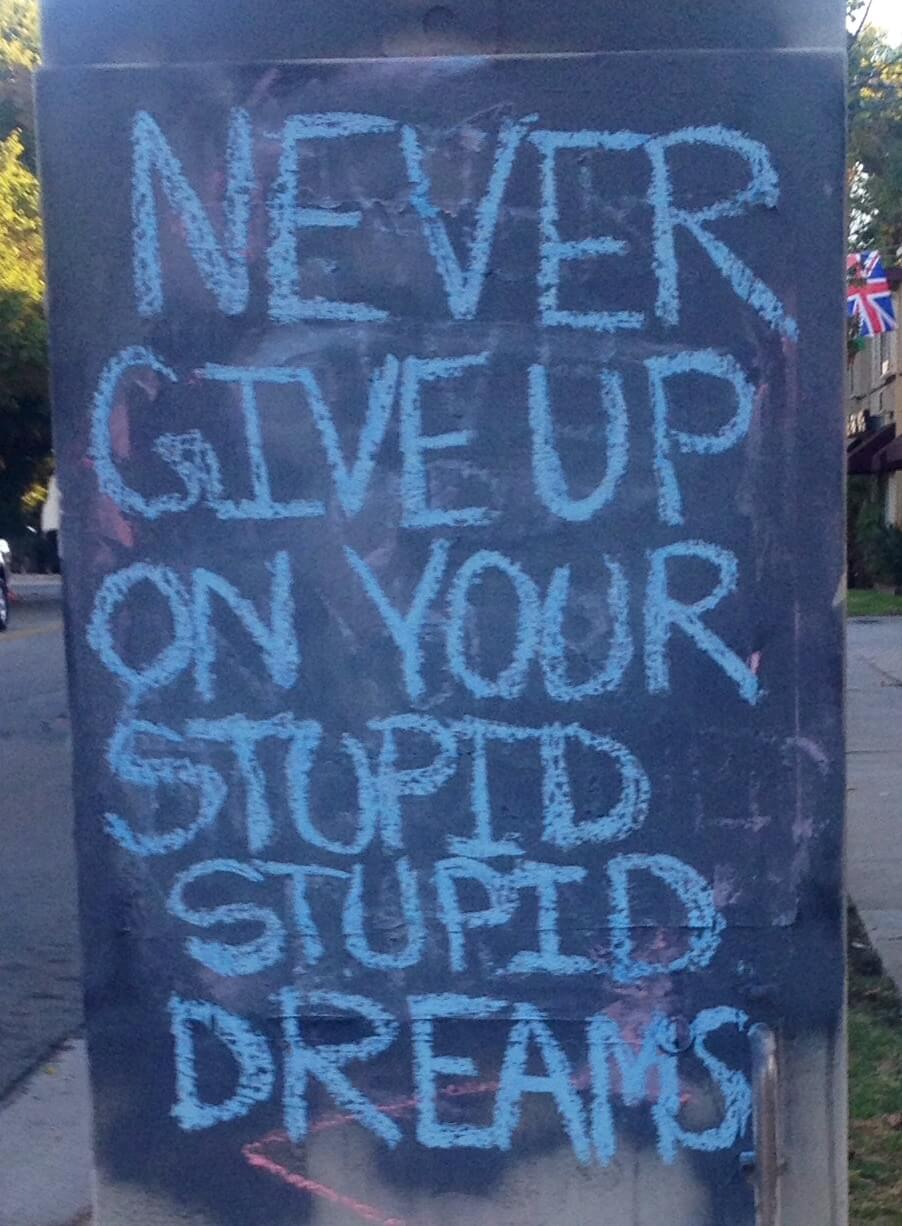 NEVER
GIVE UP
ON YOUR
STUPID
STUPID
DREAMS